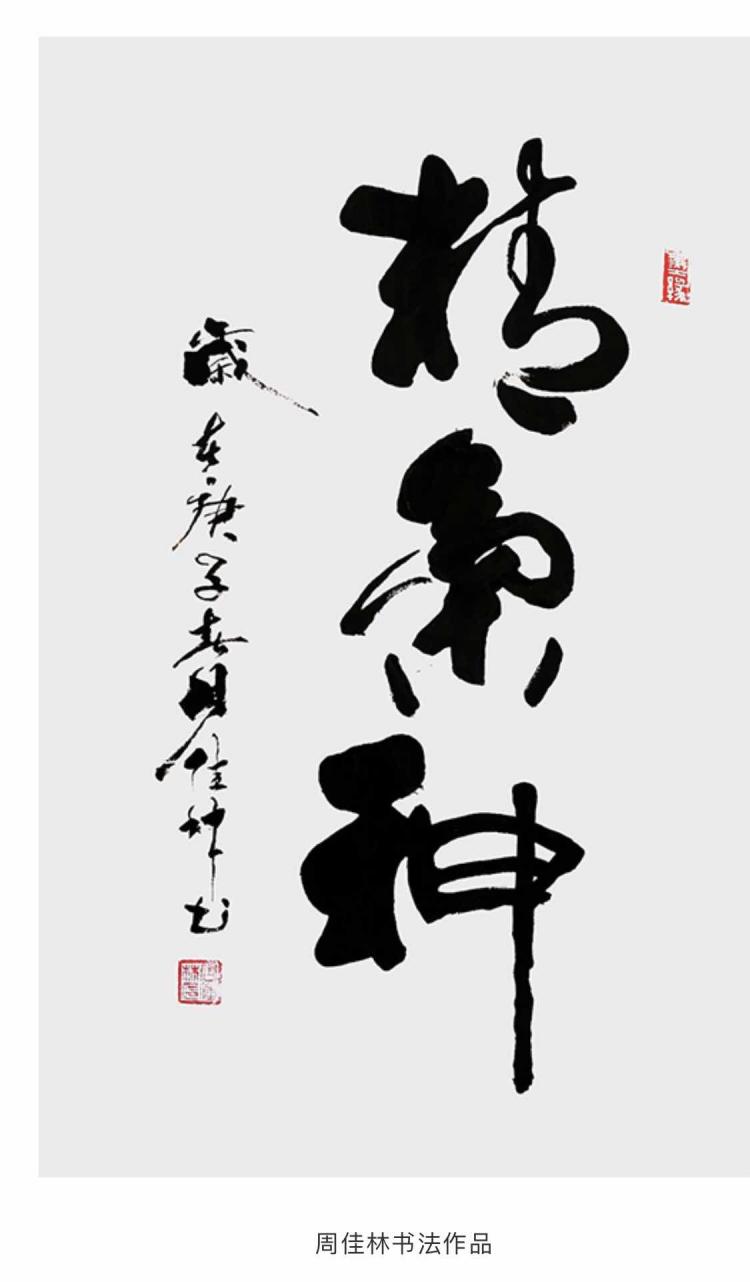 精氣神
歲在庚子春佳林书
周佳林书法作品